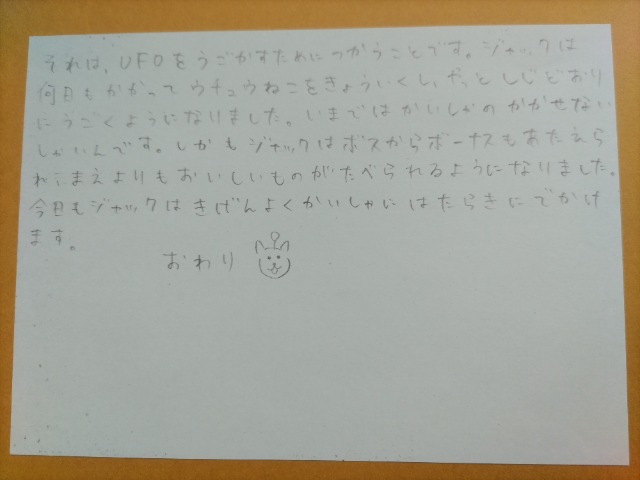 それは、UFOをうごかすためにつかうことです。ジャックは
何日もかかってウチュウねこをきょういくし、やっとしじどおり
にうごくようになりました。いまではかいしゃのかかせない
しゃいんです。しかもジャックはボスからボーナスもあたえら
れ、まえよりもおいしいものがたべられるようになりました。
今日もジャックはきげんよくかいしゃにはたらきにでかけ
ます。
おわり